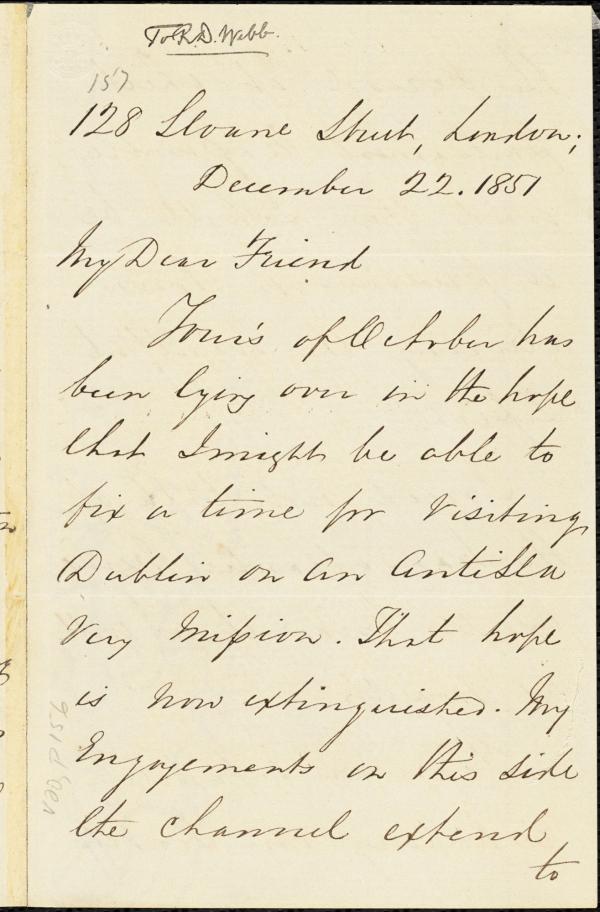 To R. D. Webb.
157
128 Sloane Street, London;
December 22. 1851
My Dear Friend
Your's of October has
been lying over in the hope
that I might be able to
fix a time for visiting
Dublin on an Antisla
very Mission. That hope
is now extinguished. My
Engagements on this side
the channel extend
to